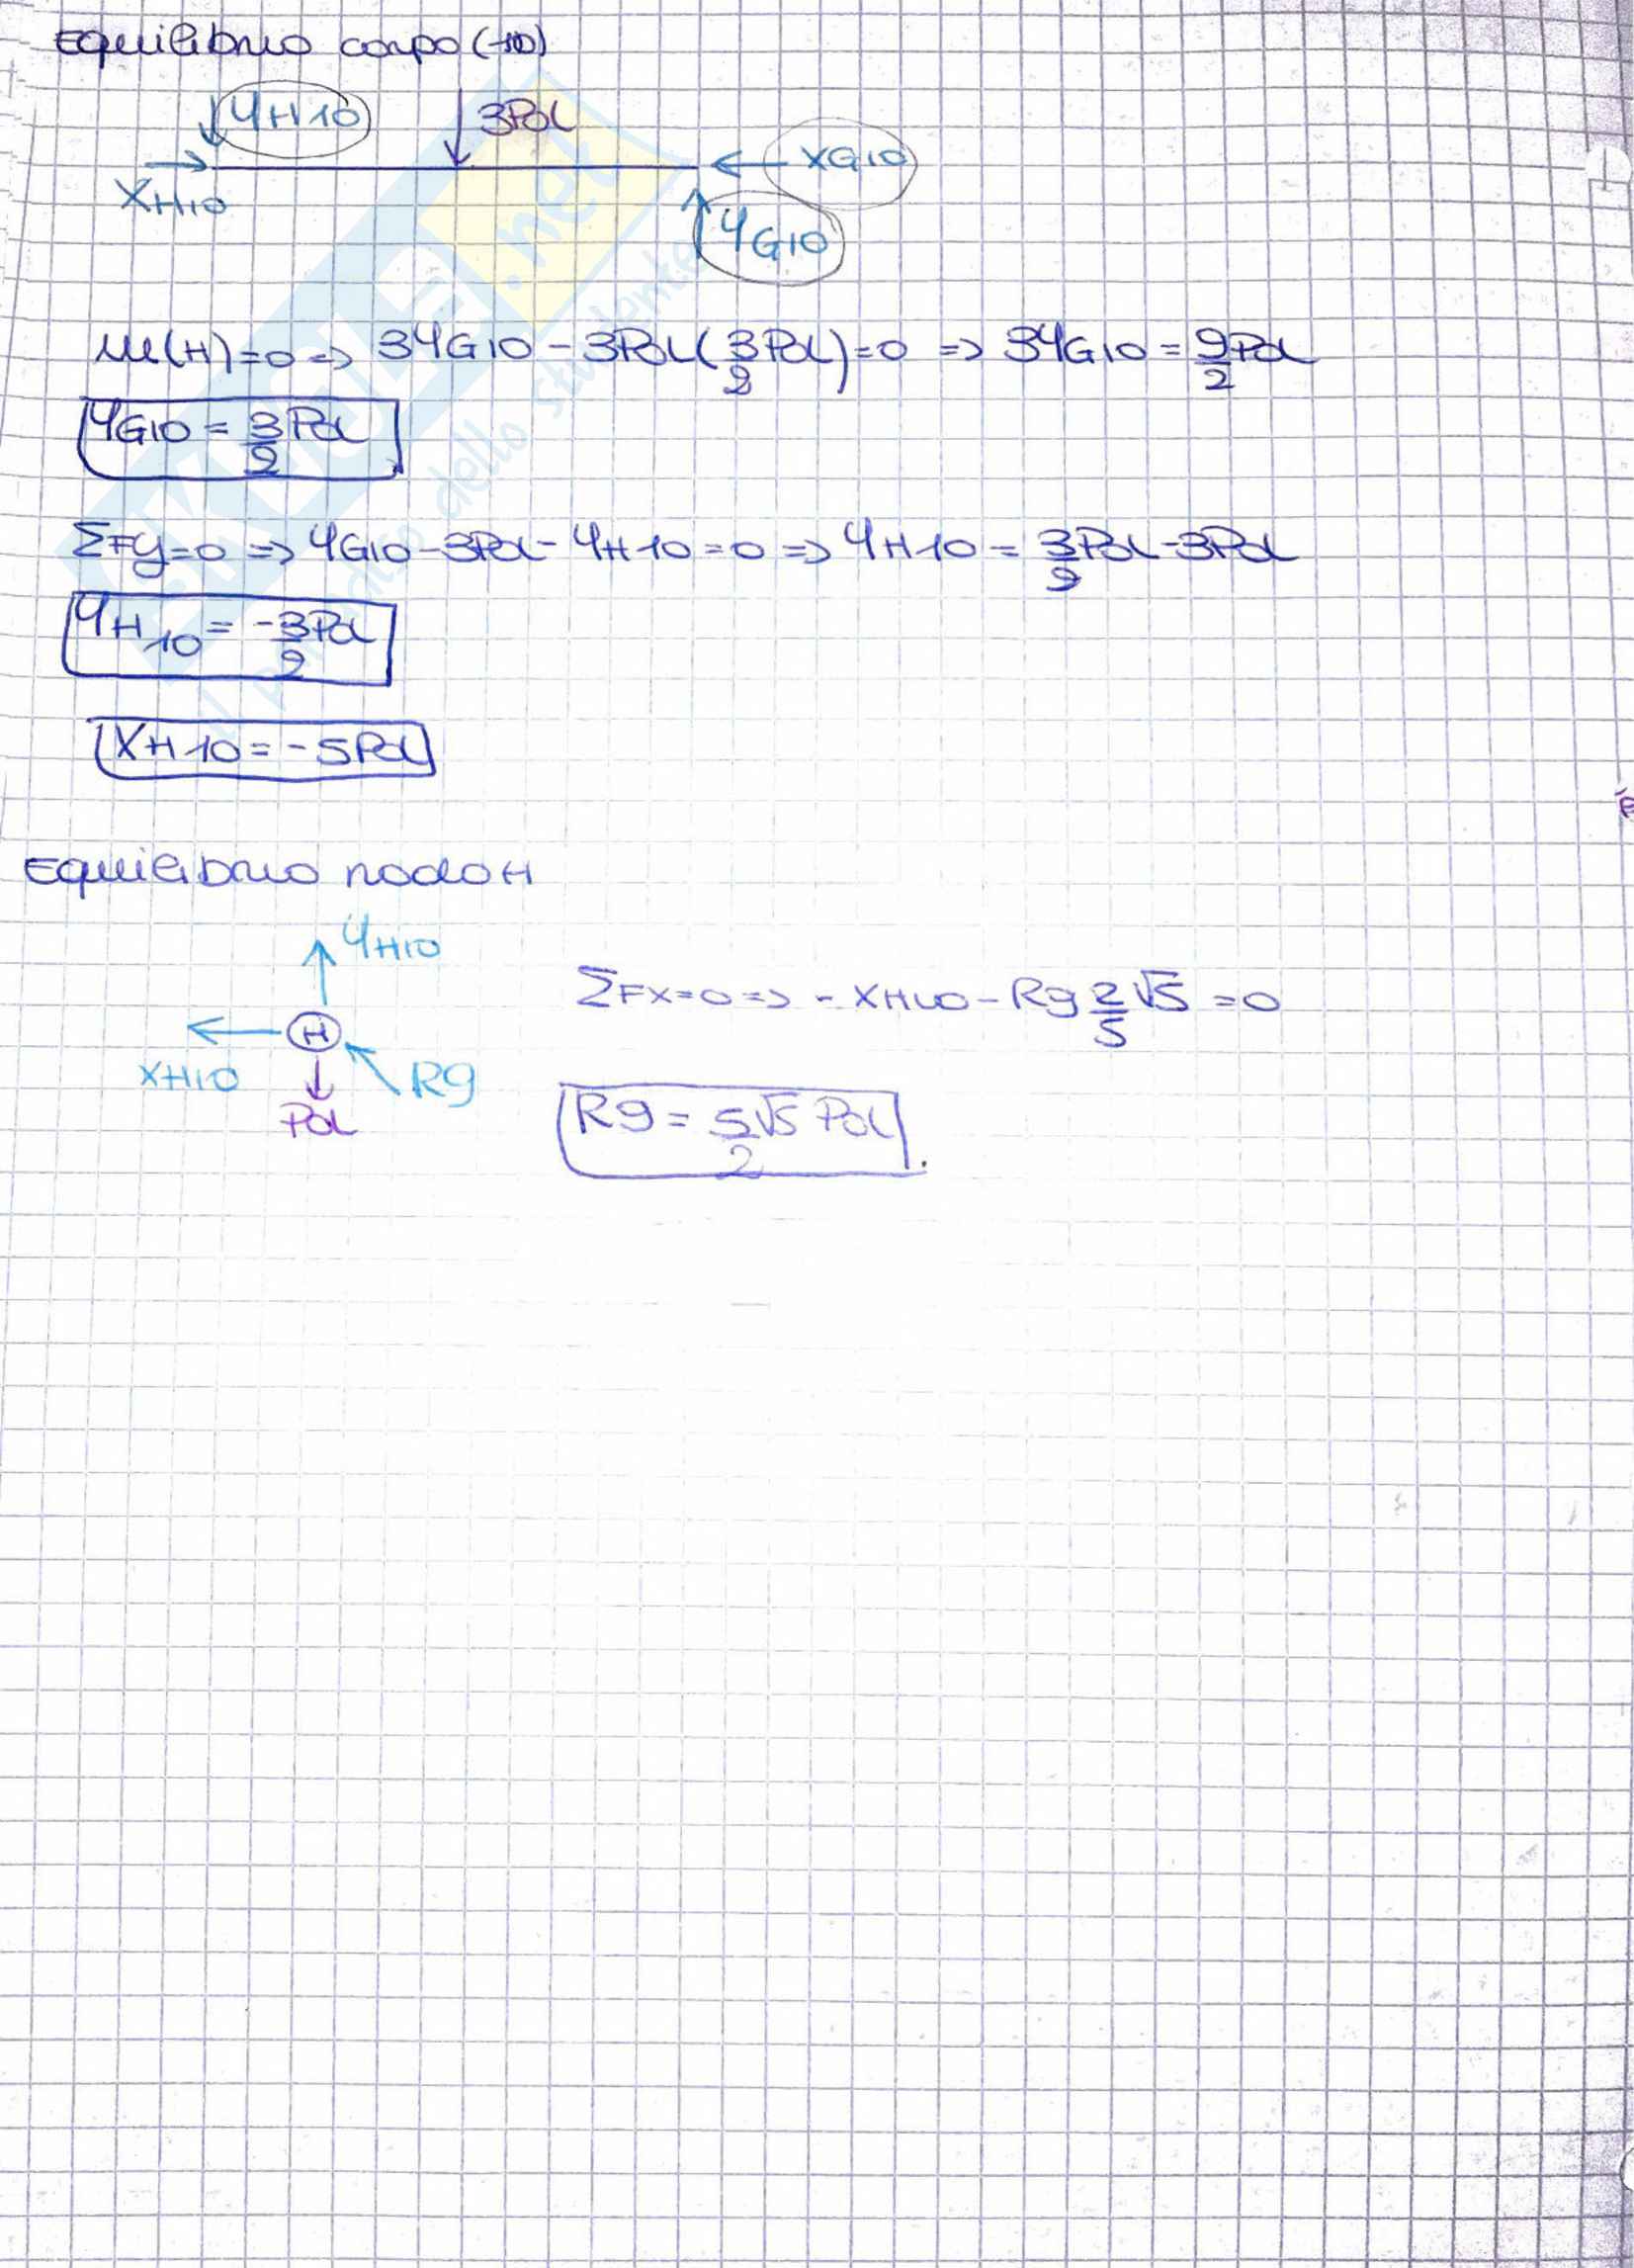 Equilibrio corpo (10)
YH10
3Pol
XG10
XH10
YG10
M(H)=0 => 3YG10 - 3Pol(3/2 Pol)=0 => 3YG10 = 9/2 Pol
YG10 = 3/2 Pol
ΣFy=0 => YG10 - 3Pol - YH10 = 0 => YH10 = 3/2 Pol - 3Pol
YH10 = -3/2 Pol
XH10 = -5Pol
Equilibrio nodo H
YH10
H
XH10
R9
Pol
ΣFx=0 => - XH10 - R9 2/5 √5 = 0
R9 = 5/2 √5 Pol.
.net
dello studente